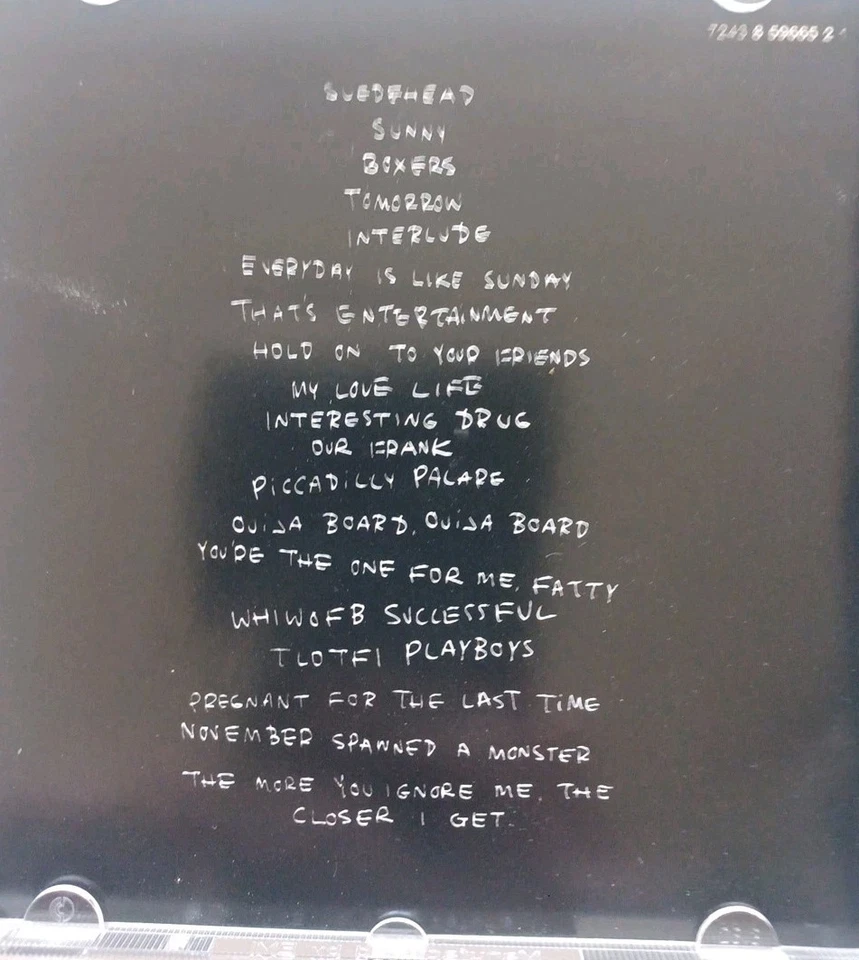 7243 8 59665 2
SUEDEHEAD
SUNNY
BOXERS
TOMORROW
INTERLUDE
EVERYDAY IS LIKE SUNDAY
THAT'S ENTERTAINMENT
HOLD ON TO YOUR FRIENDS
MY LOVE LIFE
INTERESTING DRUG
OUR FRANK
PICCADILLY PALARE
OUIJA BOARD, OUIJA BOARD
YOU'RE THE ONE FOR ME, FATTY
WHIWOFB SUCCESSFUL
TLOTFI PLAYBOYS
PREGNANT FOR THE LAST TIME
NOVEMBER SPAWNED A MONSTER
THE MORE YOU IGNORE ME, THE
CLOSER I GET.